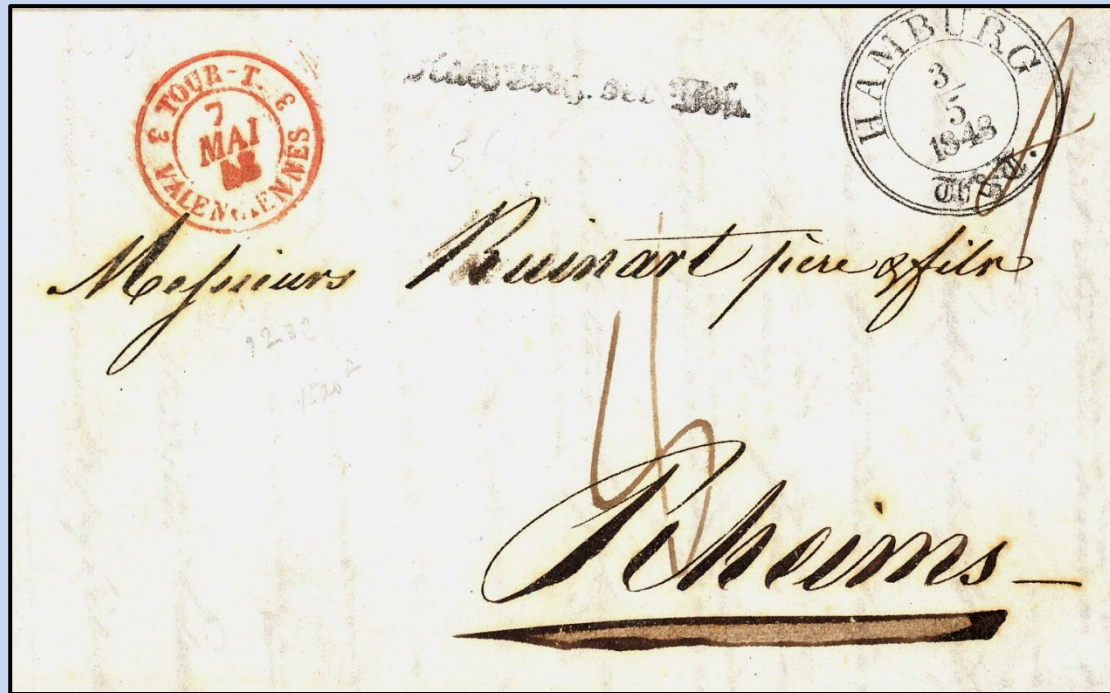 3 TOUR-T. 3
7
MAI
VALENCIENNES
der
HAMBURG
3/5
1848
Messieurs Ruinart père & fils
Rheims